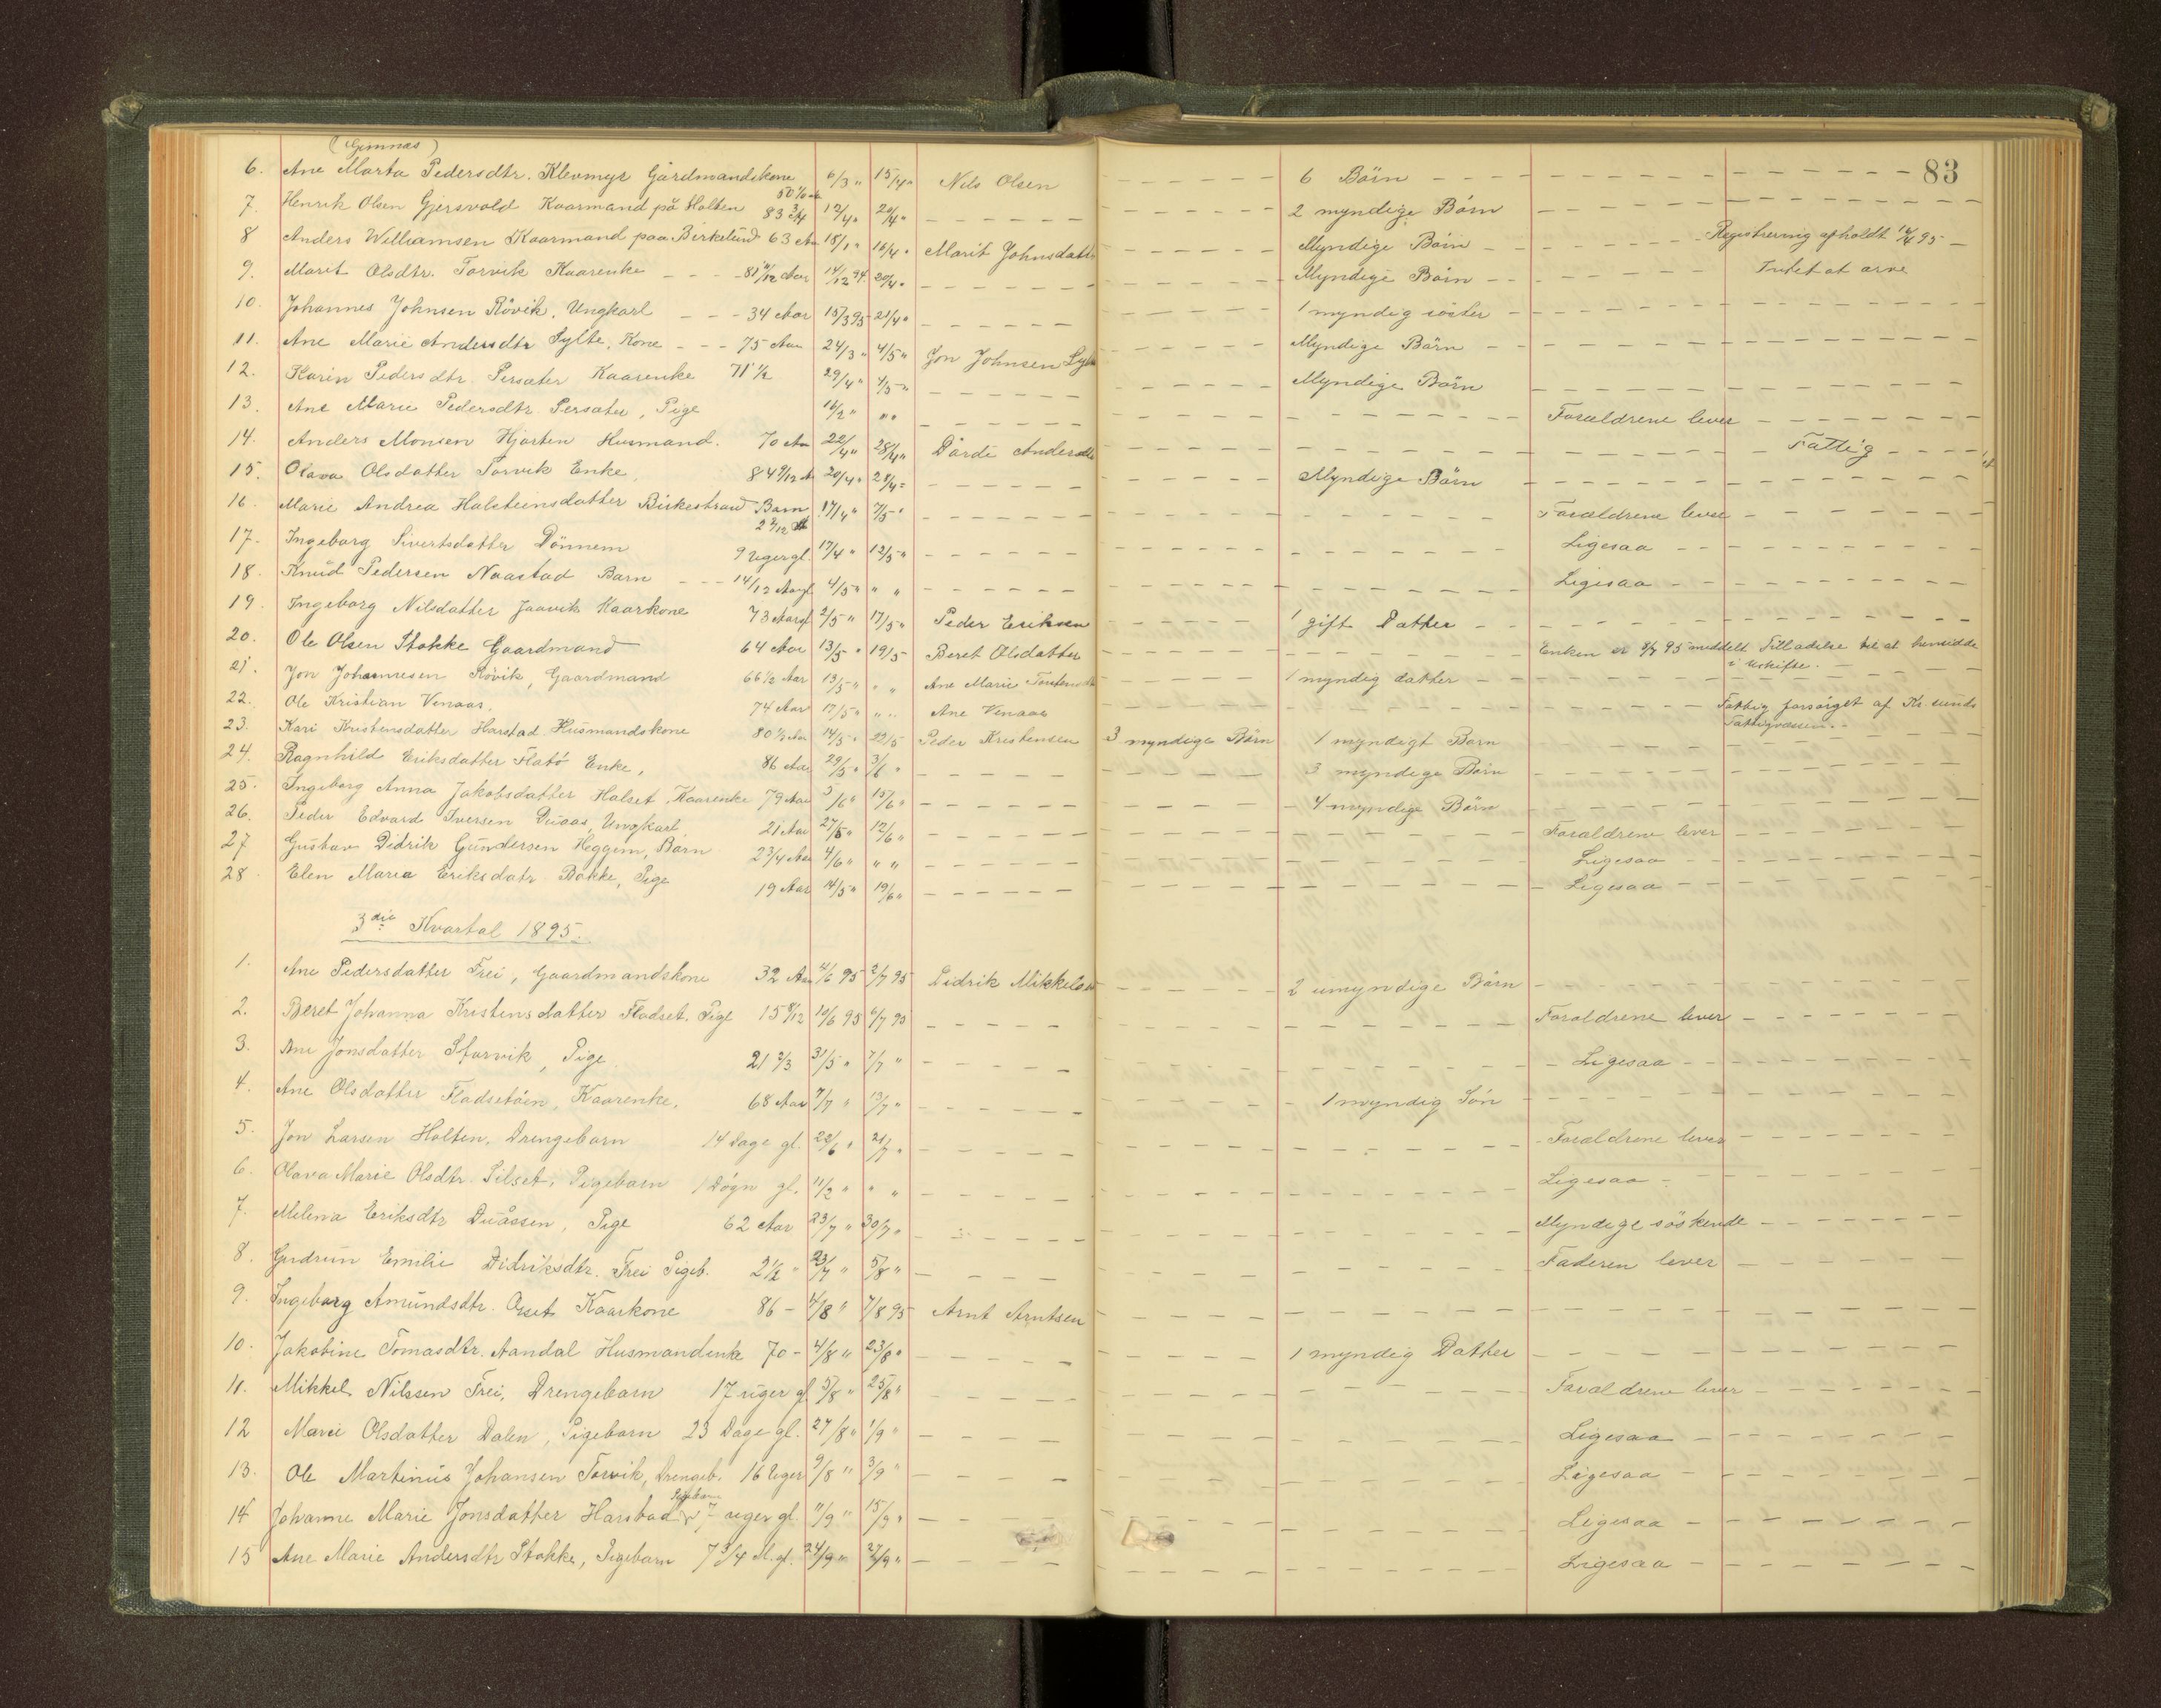 (Gimnas)
83
6. Ane Marta Pedersdtr. Klevmyr Gårdmandskone 50 6/3 " 15/4 " Nils Olsen 6 Börn
7. Henrik Olsen Gjersvold Kaarmand på Holten 83 3/4 12/4 " 20/4 " 2 myndige Börn
8 Anders Williamsen Kaarmand paa Berkelund 63 Aar 15/1 " 16/4 " Marit Johnsdatter Myndige Börn Registrering afholdt 14/4 95
9. Marit Olsdtr. Torvik Kaarenke 81 11/12 Aar 14/12 94. 20/4 " Myndige Börn Intet at arve
10. Johannes Johnsen Rövik, Ungkarl 34 Aar 15/3 95 21/4 " 1 myndig söster
11. Ane Marie Andersdtr Sylte, Kone 75 Aar 24/3 " 4/5 " Jon Johnsen Sylte Myndige Börn
12. Karin Pedersdtr. Persæter Kaarenke 71 1/2 29/4 " 4/5 " Myndige Börn
13. Ane Marie Pedersdtr. Persæter, Pige 16/2 " " " Forældrene lever
14. Anders Monsen Hjorten Husmand. 70 Aar 22/4 " 28/4 " Dårdi Andersdtr Fattig
15. Olava Olsdatter Torvik Enke, 84 9/12 A 20/4 " 28/4 = Myndige Börn
16. Marie Andrea Halsteinsdatter Birkestrand Barn 17/4 " 7/5 " Forældrene lever
2 2/12 A
17. Ingeborg Sivertsdatter Dönnem 9 Uger gl. 17/4 " 12/5 " Ligesaa
18. Knud Pedersen Naastad Barn 14/12 Aar gl 4/5 " " " Ligesaa
19. Ingeborg Nilsdatter Jaavik Kaarkone 73 Aar gl 2/5 " 17/5 " Peder Eriksen 1 gift Datter
20. Ole Olsen Stokke Gaardmand 64 Aar 13/5 " 19/5 Beret Olsdatter Enken er 9/7 95 meddelt Tilladelse til at hensidde
i Uskifte.
21. Jon Johannesen Rövik, Gaardmand 66 1/2 Aar 13/5 " " " Ane Marie 1 myndig datter
22. Ole Kristian Venaas. 74 Aar 17/5 " " " Ane Venaas Fattig forsörget af Kr. sunds
Fattigvæsen.
23. Kari Kristensdatter Harstad Husmandskone 80 1/2 Aar 14/5 " 22/5 Peder Kristensen 3 myndige Börn 1 myndigt Barn
24. Ragnhild Eriksdatter Flatö Enke, 86 Aar 29/5 " 3/6 " 3 myndige Börn
25. Ingeborg Anna Jakobsdatter Halset, Kaarenke 79 Aar 3/6 " 15/6 " 4 myndige Börn
26. Peder Edvard Iversen Duaas, Ungkarl 21 Aar 27/5 " 12/6 " Forældrene lever
27 Gustav Didrik Gundersen Heggem, Barn 2 3/4 Aar 4/6 " " " Ligesaa
28 Elen Maria Eriksdatr Bakke, Pige 19 Aar 14/5 " 19/6 " Ligesaa
3die Kvartal 1895.
1. Ane Pedersdatter Frei, Gaardmandskone 32 Aar 4/6 95 2/7 95 Didrik Mikkelsen 2 umyndige Börn
2. Beret Johanna Kristensdatter Fladset. Pige 15 8/12 10/6 95 6/7 95 Forældrene lever
3. Ane Jonsdatter Storvik, Pige 21 2/3 31/5 " 7/7 " Ligesaa
4. Ane Olsdatter Fladsetöin, Kaarenke, 68 Aar 7/7 " 13/7 " 1 myndig Sön
5. Jon Larsen Holten, Drengebarn 14 Dage gl. 22/6 " 21/7 " Forældrene lever
6. Olava Marie Olsdtr. Silset, Pigebarn 1 Dögn gl. 11/2 " " " Ligesaa
7. Milena Eriksdtr Duåssen, Pige 62 Aar 23/7 " 30/7 " Myndige söskende
8. Gudrun Emilie Didriksdtr. Frei Pigeb. 2 1/2 " 23/7 " 5/8 " Faderen lever
9. Ingeborg Amundsdtr. Oset Kaarkone 86 - 4/8 " 7/8 95 Arnt Arntsen
10. Jakobine Tomasdtr. Aandal Husmandenke 70 - 4/8 " 23/8 " 1 myndig Datter
11. Mikkel Nilssen Frei, Drengebarn 17 uger gl 5/8 " 25/8 " Forældrene lever
12 Marie Olsdatter Dalen, Pigebarn 23 Dage gl. 27/8 " 1/9 " Ligesaa
13. Ole Martinus Johansen Torvik, Drengeb. 16 Uger 9/8 " 3/9 " Ligesaa
Pigebarn
14 Johanne Marie Jonsdatter Harstad 7 uger gl. 11/9 " 15/9 " Ligesaa
15 Ane Marie Andersdtr Stokke, Pigebarn 7 3/4 M. gl. 24/9 " 27/9 " Ligesaa